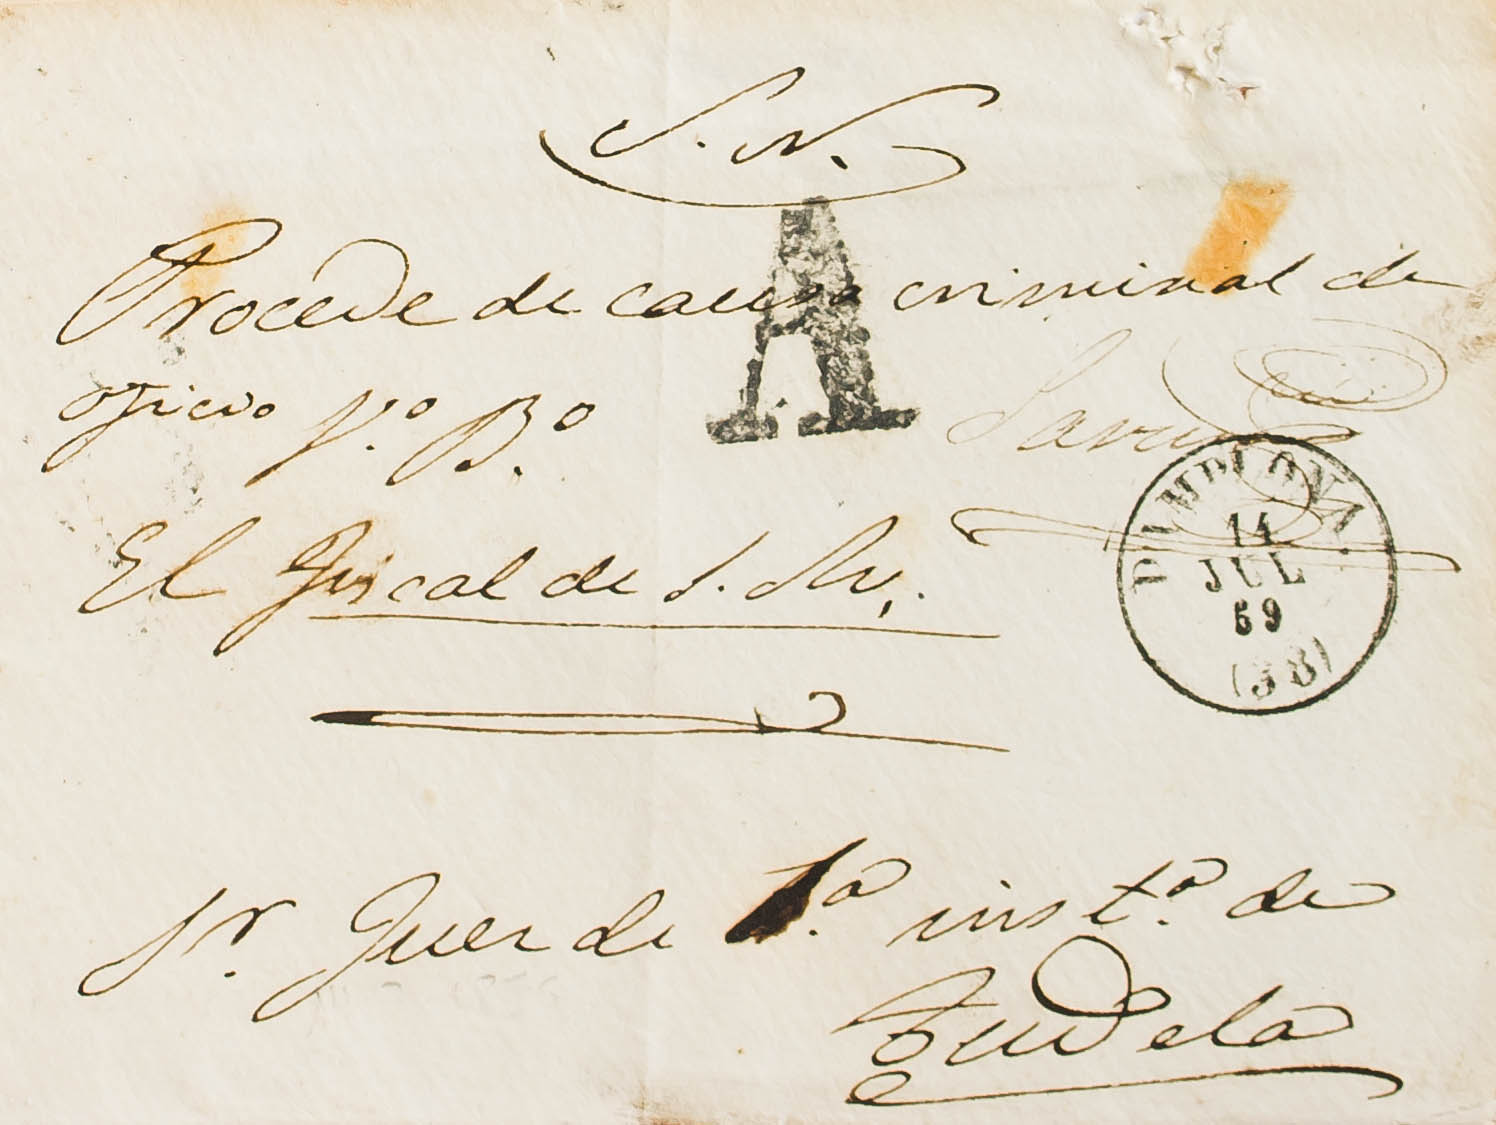 S. N.
A
Procede de causa criminal de
oficio V.º B.º
El Fiscal de S. M.
PAMPLONA
11
JUL
59
(38)
Sr. Juez de 1.ª inst.ª de
Tudela